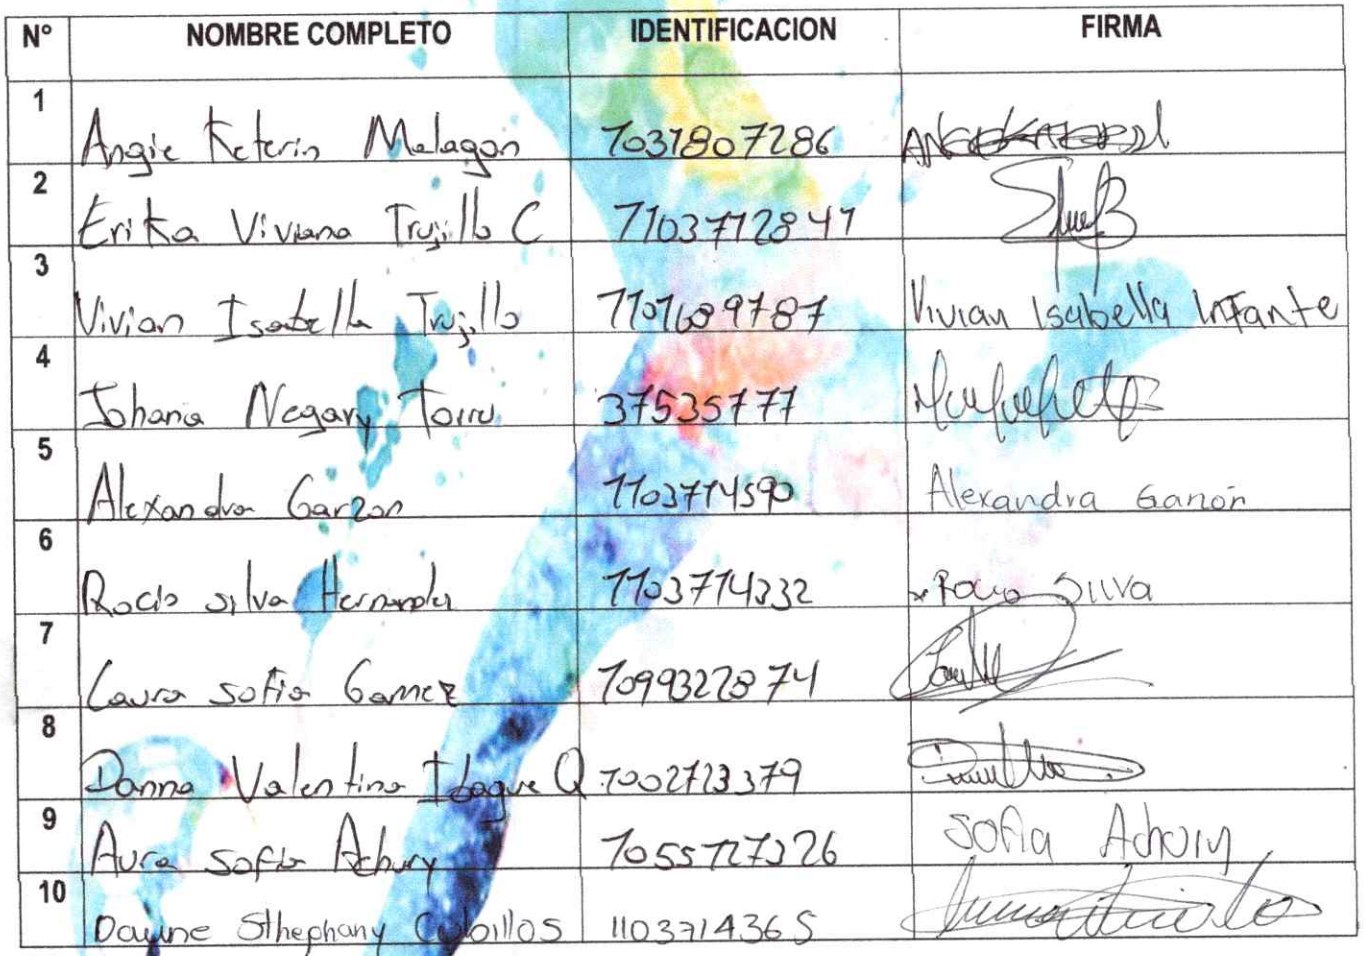 Nº NOMBRE COMPLETO IDENTIFICACION FIRMA
1 Angie Keterin Malagon 1031807286
2 Erika Viviana Trujillo C 1103712841
3 Vivian Isabella Trujillo 1101689787 Vivian Isabella Infante
4 Johana Negary Torru 37535777
5 Alexandra Garzon 1103714590 Alexandra Garzón
6 Rocio silva Hernandez 1103714332 Rocio Silva
7 Laura sofia Gamez 1099322874
8 Danna Valentina Ibague Q 1002723379
9 Aura sofia Achury 1055127326 Sofia Achury
10 Dayine Sthephany Cubillos 1103714365